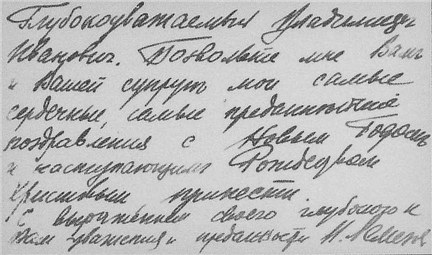 Глубокоуважаемый Владимир
Иванович. Позвольте мне Вам
и Вашей супруге мои самые
сердечные, самые преданнейшие
поздравления с Новым Годом
и наступающим Рождеством
Христовым принести
С выражением своего глубокого к
Вам уважения и преданности И.